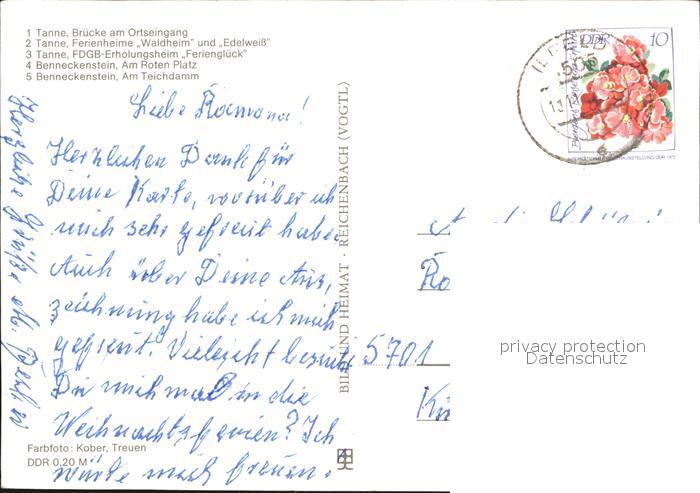 1 Tanne, Brücke am Ortseingang
2 Tanne, Ferienheime „Waldheim" und „Edelweiß"
3 Tanne, FDGB-Erholungsheim „Ferienglück"
4 Benneckenstein, Am Roten Platz
5 Benneckenstein, Am Teichdamm
Liebe Ramona!
Herzlichen Dank für
Deine Karte, worüber ich
mich sehr gefreut habe.
Auch über Deine Aus,
zeichnung habe ich mich
gefreut. Vielleicht besuchst
Du mich mal in die
Weihnachtsferien? Ich
würde mich freuen.
Herzliche Grüße
Farbfoto: Kober, Treuen
DDR 0,20 M
BILD UND HEIMAT · REICHENBACH (VOGTL)
DDR
10
505
5701
privacy protection
Datenschutz